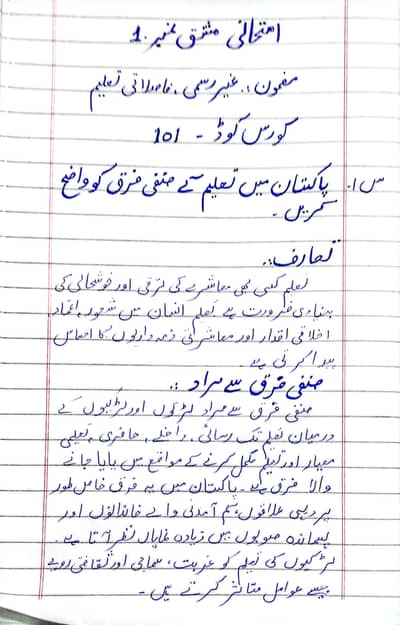 امتحانی مشق نمبر 1.
مضمون:. غیر رسمی. فاصلاتی تعلیم
کورس کوڈ - 101
س1. پاکستان میں تعلیم کے صنفی فرق کو واضح
کریں۔
تعارف:.
تعلیم کسی بھی معاشرے کی ترقی اور خوشحالی کی
بنیادی ضرورت ہے تعلیم انسان میں شعور، اعتماد
اخلاقی اقدار اور معاشرتی ذمہ داریوں کا احساس
پیدا کرتی ہے۔
صنفی فرق سے مراد :.
صنفی فرق سے مراد لڑکوں اور لڑکیوں کے
درمیان تعلیم تک رسائی، داخلے، حاضری، تعلیمی
معیار اور تعلیم مکمل کرنے کے مواقع میں پایا جانے
والا فرق ہے۔ پاکستان میں یہ فرق خاص طور
پر دیہی علاقوں، کم آمدنی والے خاندانوں اور
پسماندہ صوبوں میں زیادہ نمایاں نظر آتا ہے۔
لڑکیوں کی تعلیم کو غربت، سماجی اور ثقافتی رویے
جیسے عوامل متاثر کرتے ہیں۔